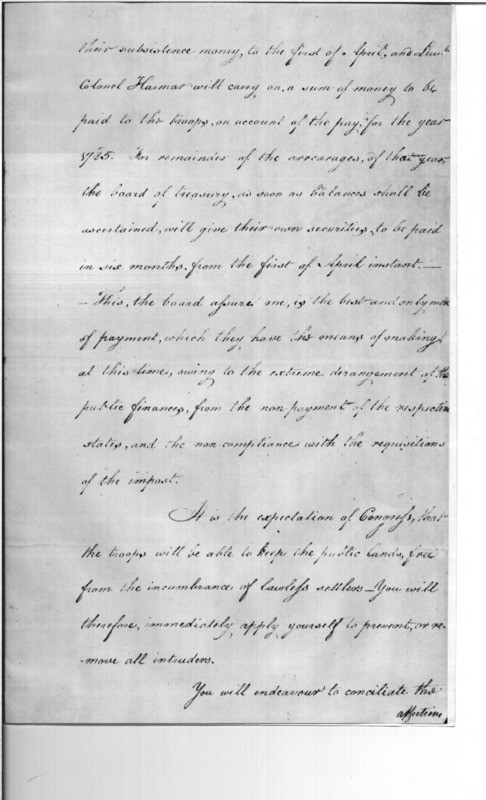 their subsistence money, to the first of April, and Lieut.
Colonel Harmar will carry on, a sum of money to be
paid to the troops, on account of the pay, for the year
1785. For remainder of the arrearages, of that year,
the board of treasury, as soon as balances shall be
ascertained, will give their own securities, to be paid
in six months, from the first of April instant. —
— This, the board assure me, is the best and only mode
of payment, which they have the means of making
at this time, owing to the extreme derangement of the
public finances, from the non payment of the respective
states, and the non compliance with the requisitions
of the impost.
It is the expectation of Congress, that
the troops will be able to keep the public lands, free
from the incumbrance of lawless settlers — You will
therefore, immediately, apply yourself to prevent, or re-
-move all intruders.
You will endeavour to conciliate the
affections